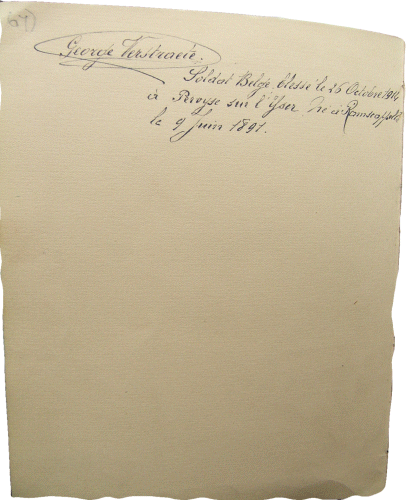 George Verstraete.
Soldat Belge blessé le 26 Octobre 1914
à Pervyse sur l'Yser Né à Ramscappelle
le 9 Juin 1891.